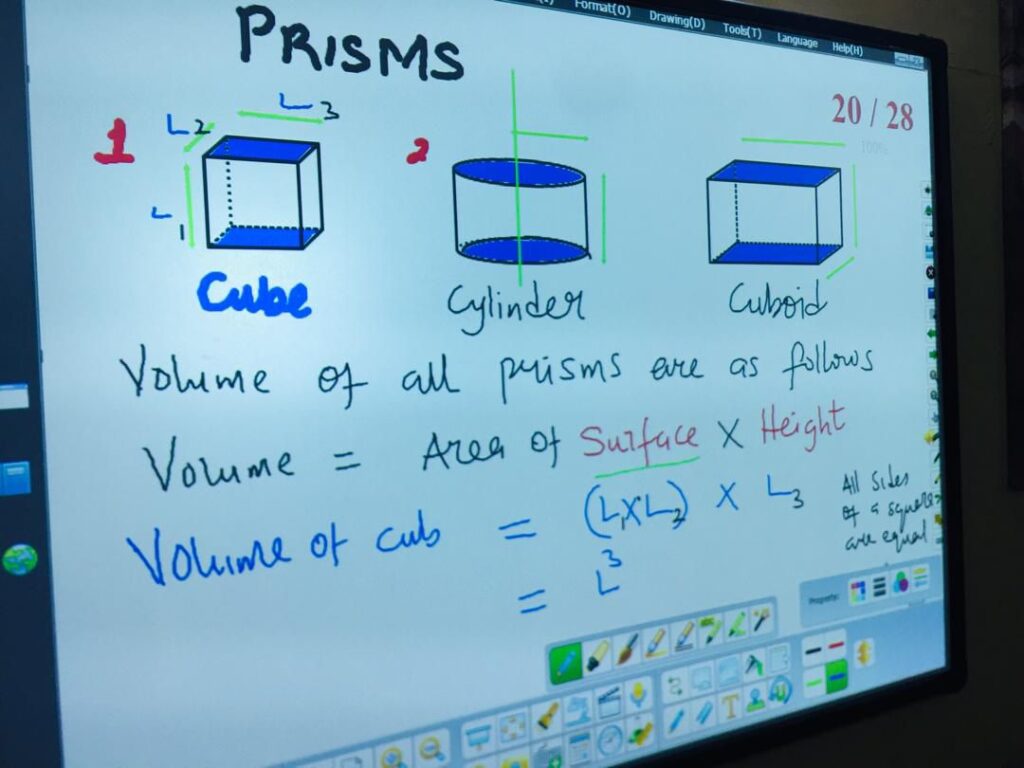 Format(O) Drawing(D) Tools(T) Language Help(H)
PRISMS
20 / 28
100%
1 L2 L3
2
L1
Cube Cylinder Cuboid
Volume of all prisms are as follows
Volume = Area of Surface X Height
Volume of cub = (L1XL2) X L3
All sides
of a square
are equal
= L3